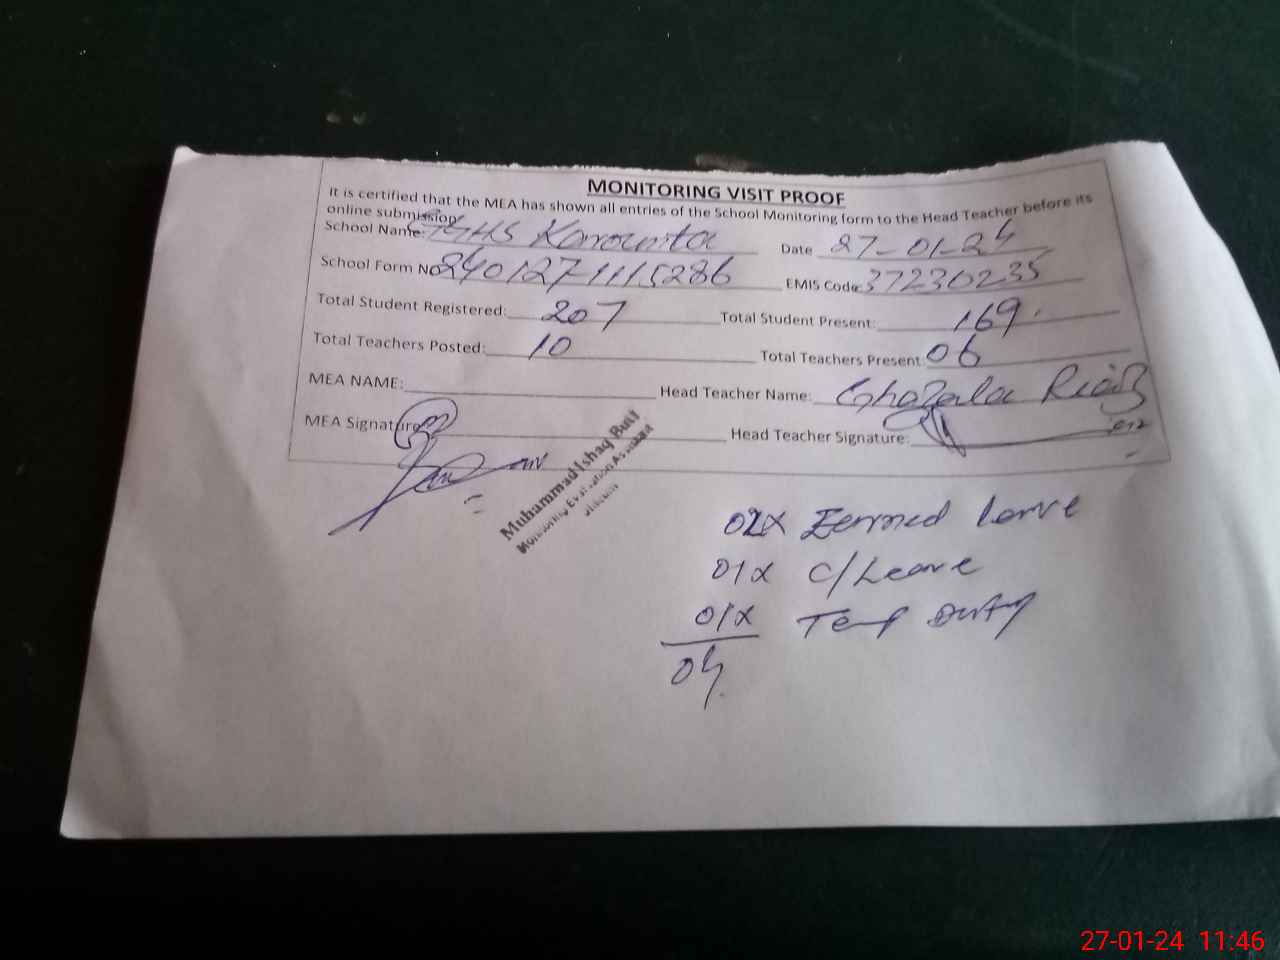 MONITORING VISIT PROOF
It is certified that the MEA has shown all entries of the School Monitoring form to the Head Teacher before its
online submission
School Name: GHS Karounta Date 27-01-24
School Form No 240127-1115286 EMIS Code: 37230235
Total Student Registered: 207 Total Student Present: 169
Total Teachers Posted: 10 Total Teachers Present: 06
MEA NAME: Head Teacher Name: Ghazala Riaz
MEA Signature Head Teacher Signature:
Muhammad Ishaq Butt
Monitoring Evaluation Assistant
02x Earned Leave
01x C/Leave
01x Temp Duty
04
27-01-24 11:46